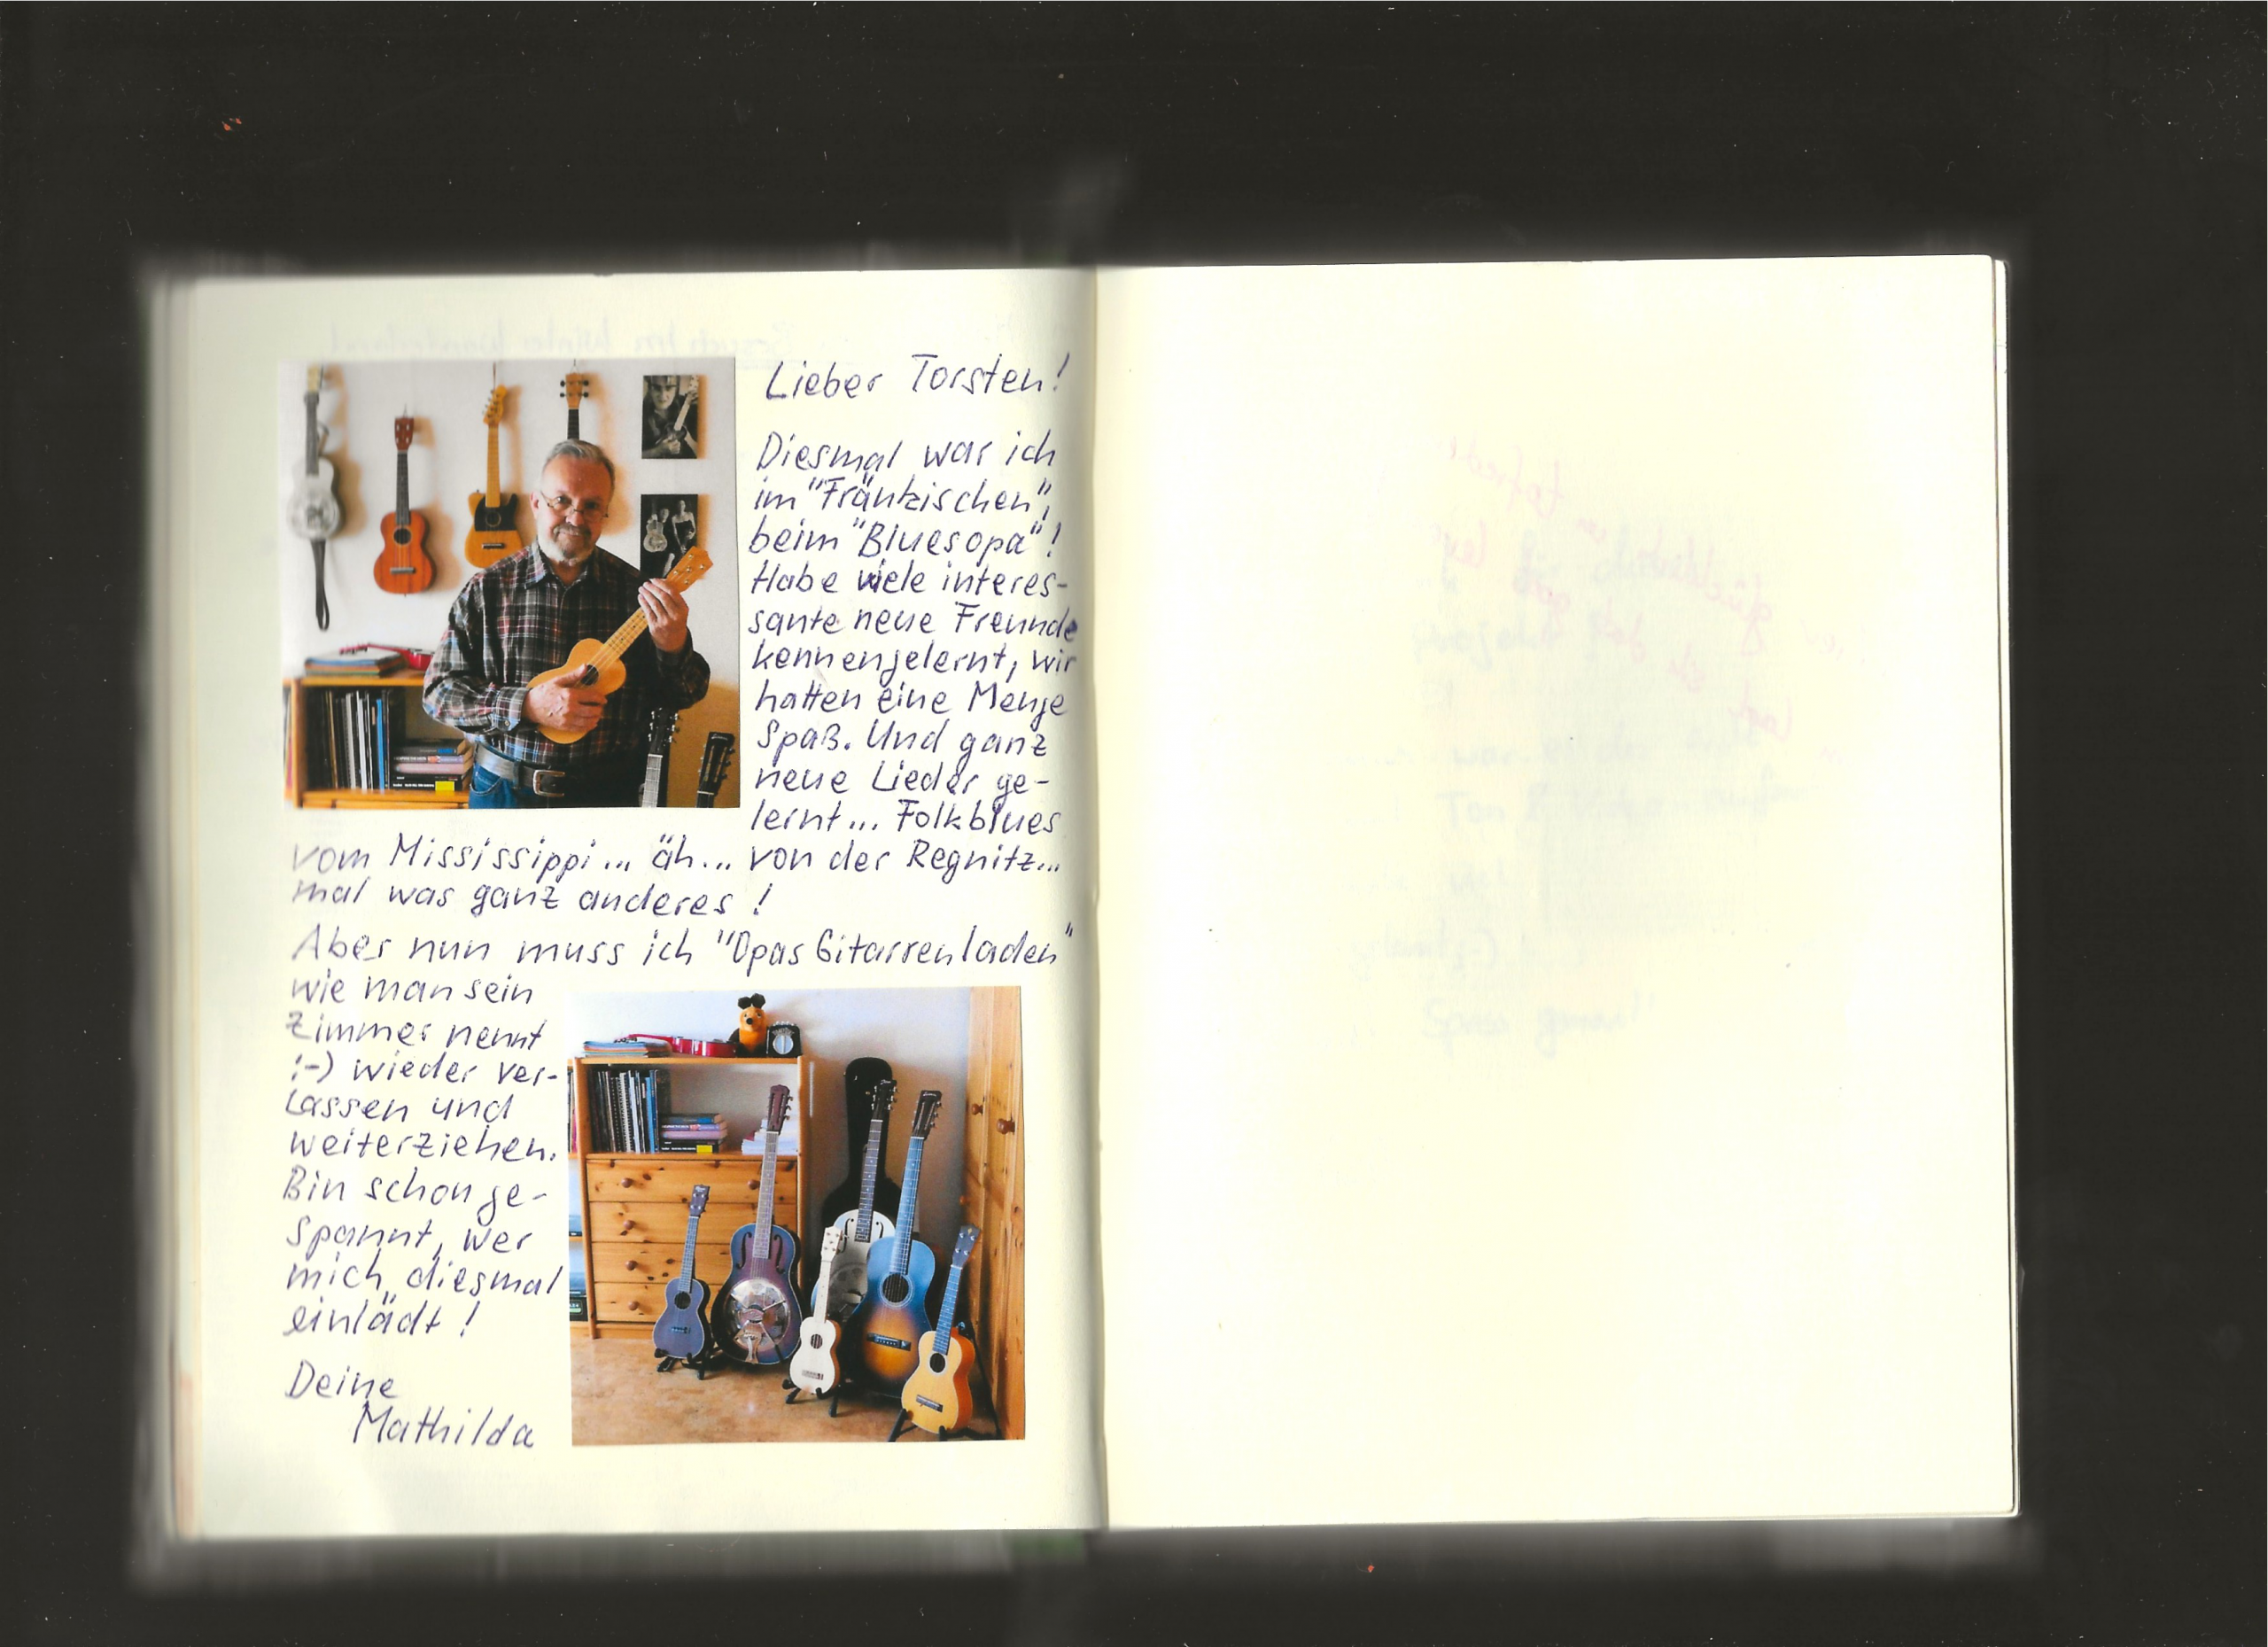 Lieber Torsten!
Diesmal war ich
im "Fränkischen",
beim "Bluesopa"!
Habe viele interes-
sante neue Freunde
kennengelernt, wir
hatten eine Menge
Spaß. Und ganz
neue Lieder ge-
lernt... Folkblues
vom Mississippi... äh... von der Regnitz...
mal was ganz anderes!
Aber nun muss ich "Opas Gitarrenladen"
wie man sein
Zimmer nennt
:-) wieder ver-
lassen und
weiterziehen.
Bin schon ge-
spannt, wer
mich diesmal
einlädt!
Deine
Mathilda